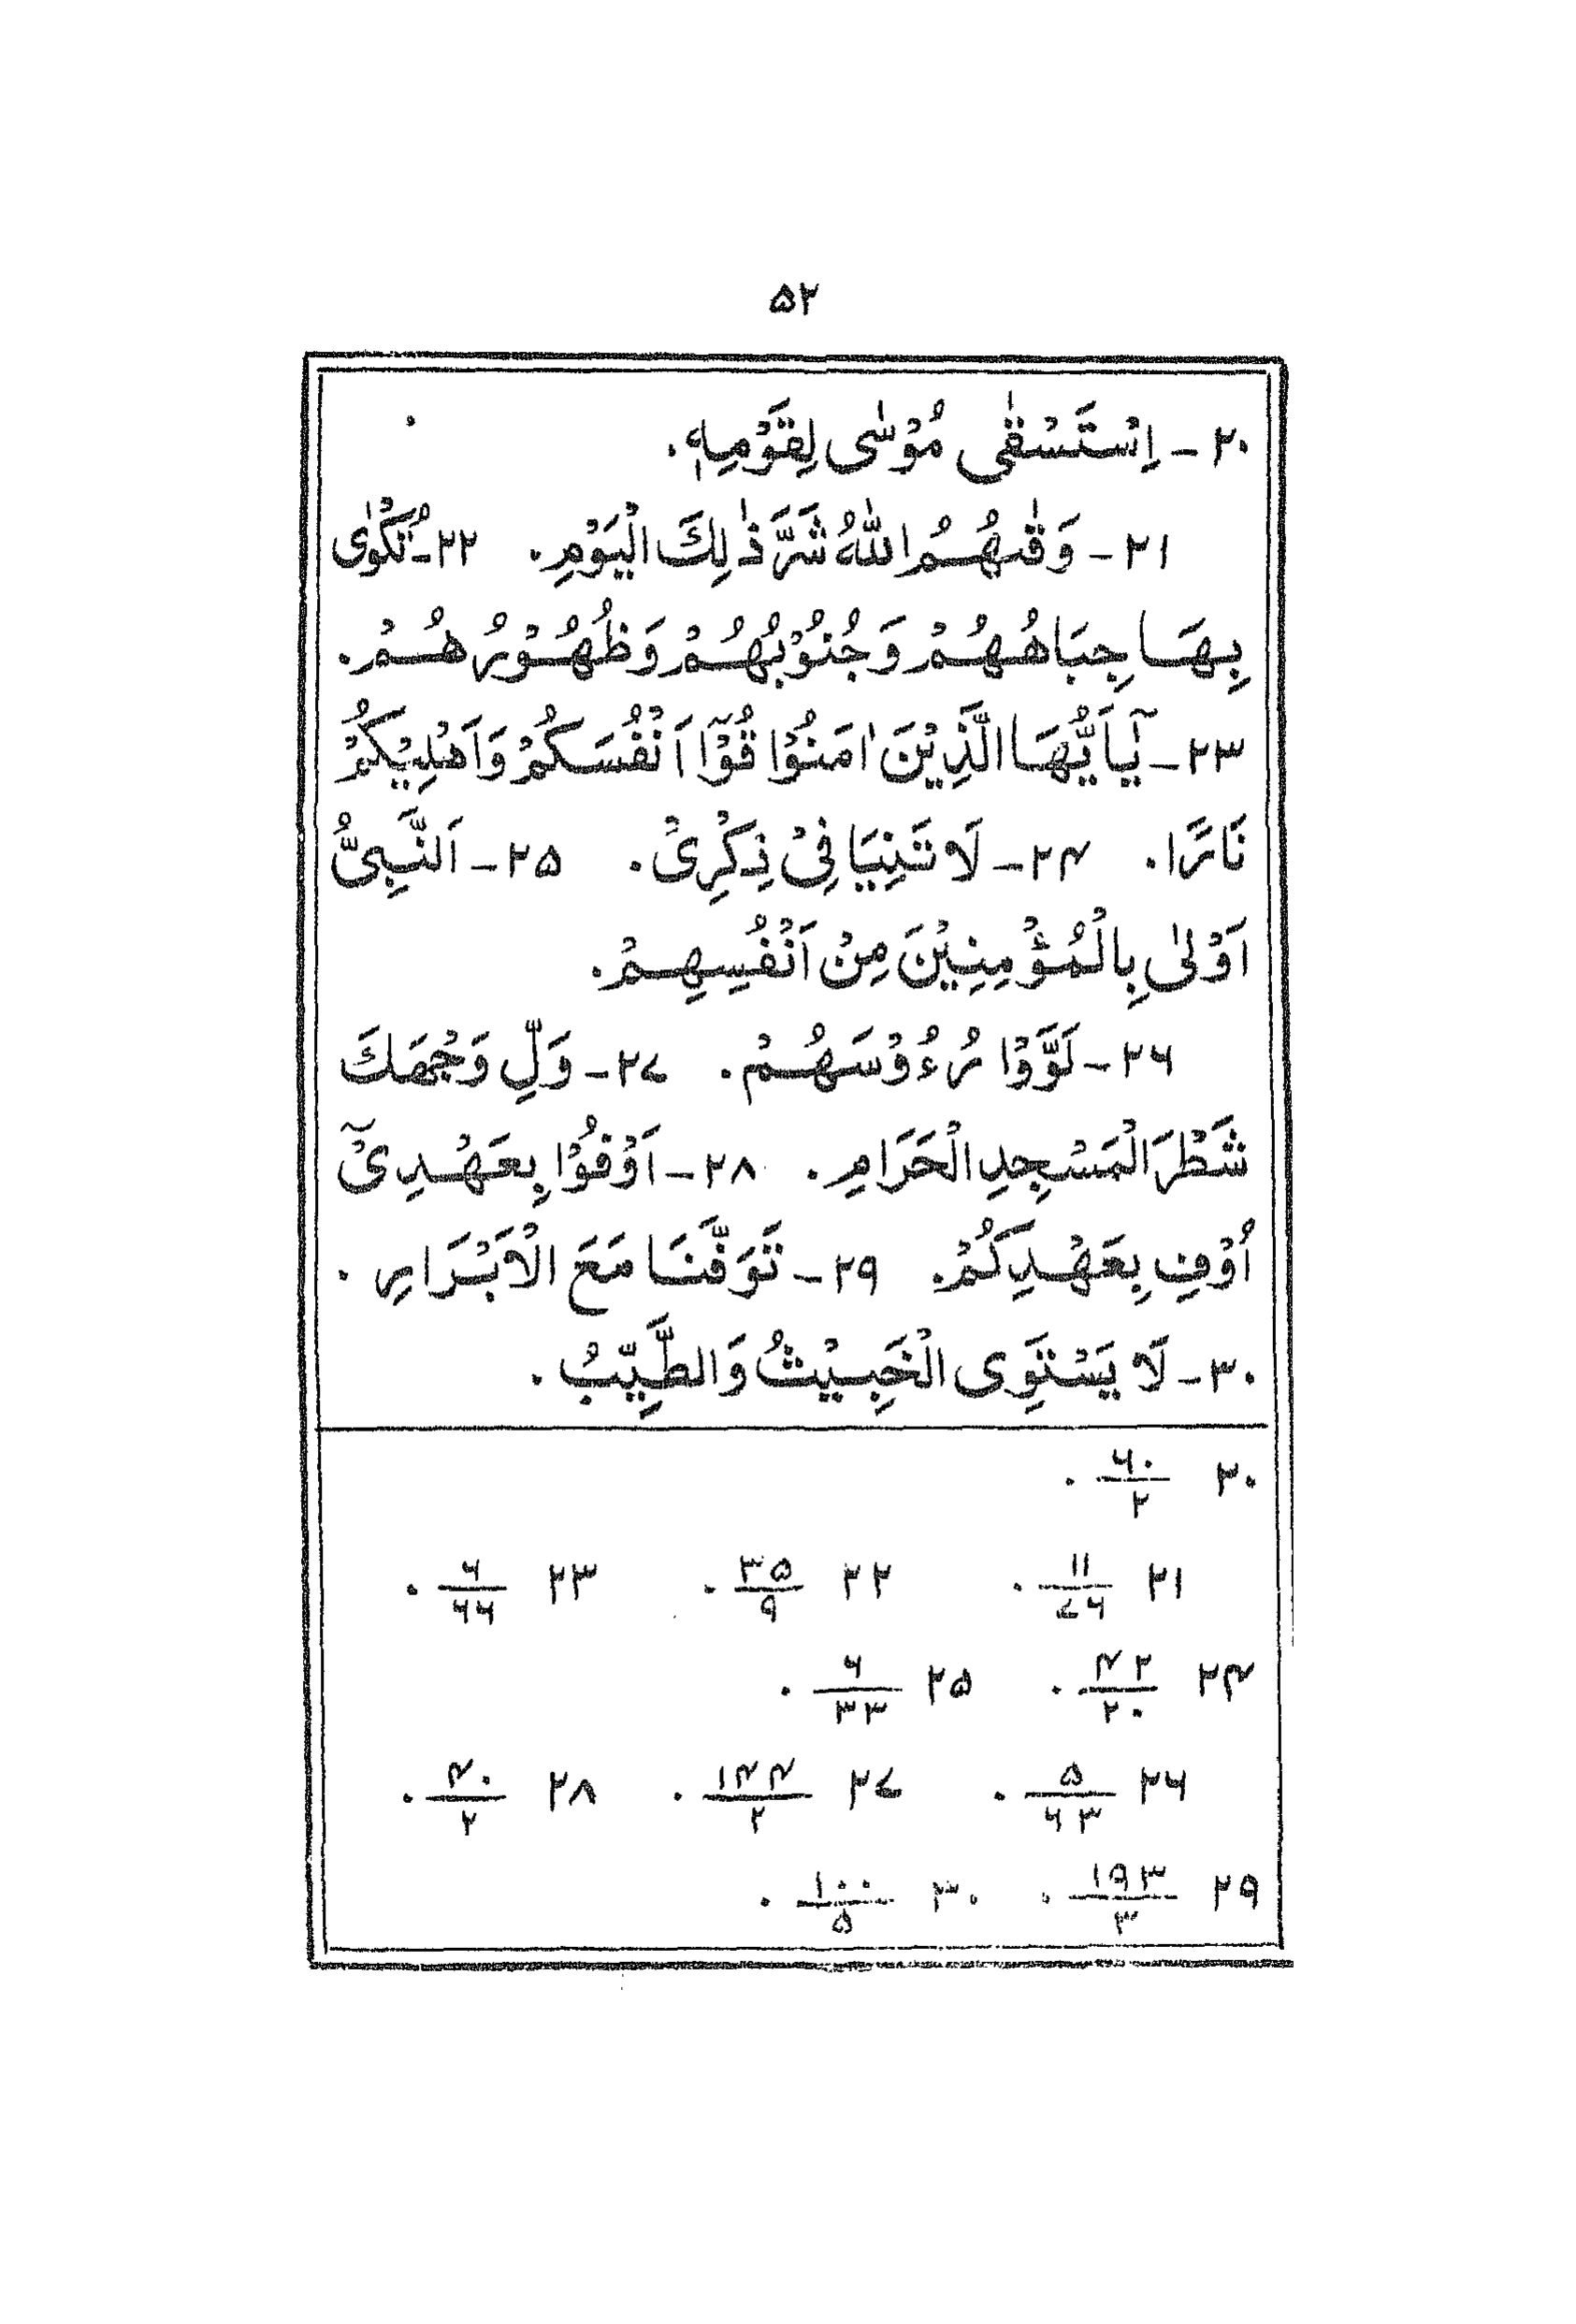 ۵۲
۲۰ـ اِسْتَسْقٰى مُوْسٰى لِقَوْمِهٖ۔
۲۱ـ وَقٰىهُمُ اللّٰهُ شَرَّ ذٰلِكَ الْيَوْمِ۔ ۲۲ـ تُكْوٰى
بِهَا جِبَاهُهُمْ وَجُنُوْبُهُمْ وَظُهُوْرُهُمْ۔
۲۳ـ يٰٓاَيُّهَا الَّذِيْنَ اٰمَنُوْا قُوْٓا اَنْفُسَكُمْ وَاَهْلِيْكُمْ
نَارًا۔ ۲۴ـ لَا تَنِيَا فِىْ ذِكْرِىْ۔ ۲۵ـ اَلنَّبِىُّ
اَوْلٰى بِالْمُؤْمِنِيْنَ مِنْ اَنْفُسِهِمْ۔
۲۶ـ لَوَّوْا رُءُوْسَهُمْ۔ ۲۷ـ وَلِّ وَجْهَكَ
شَطْرَ الْمَسْجِدِ الْحَرَامِ۔ ۲۸ـ اَوْفُوْا بِعَهْدِىْٓ
اُوْفِ بِعَهْدِكُمْ۔ ۲۹ـ تَوَفَّنَا مَعَ الْاَبْرَارِ۔
۳۰ـ لَا يَسْتَوِى الْخَبِيْثُ وَالطَّيِّبُ۔
۲۰ ۶۰/۲ ۔
۲۱ ۱۱/۷۶ ۔ ۲۲ ۳۵/۹ ۔ ۲۳ ۶/۶۶ ۔
۲۴ ۴۲/۲۰ ۔ ۲۵ ۶/۳۳ ۔
۲۶ ۵/۶۳ ۔ ۲۷ ۱۴۴/۲ ۔ ۲۸ ۴۰/۲ ۔
۲۹ ۱۹۳/۳ ۔ ۳۰ ۱۰۰/۵ ۔